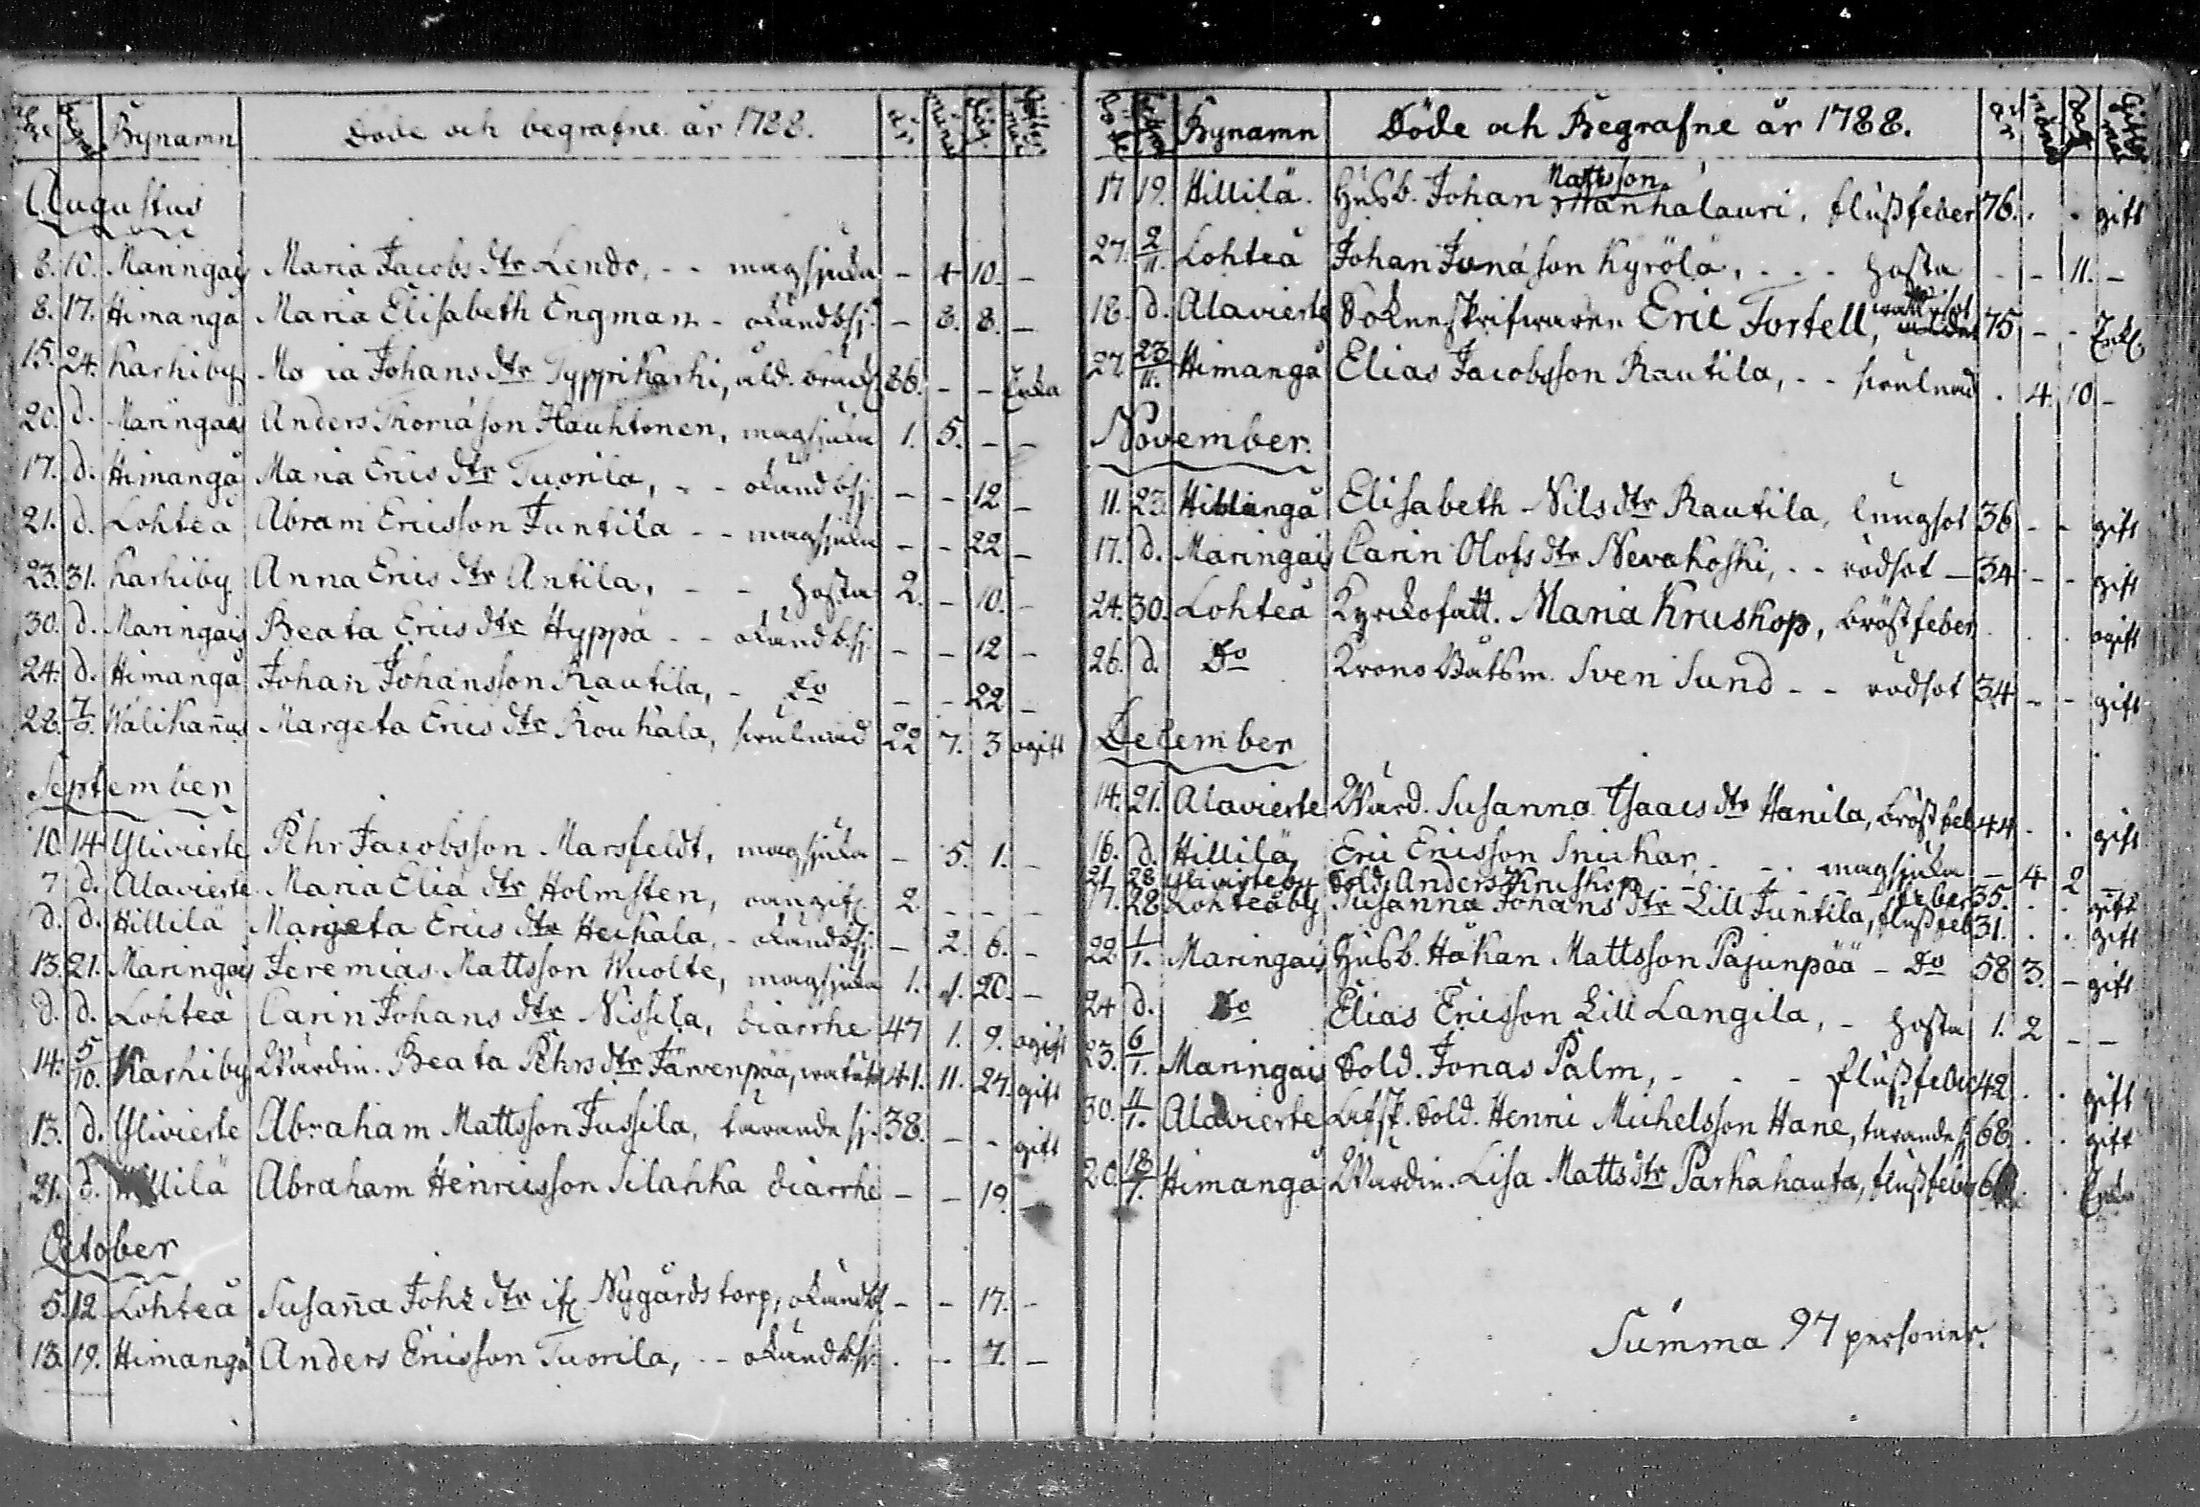 Bynamn Döde och begrafne år 1788.
Augustus
8. 10. Maringais Maria Jacobs dtr Lendo, - - magsjuka - 4 10. -
8. 17. Himangå Maria Elisabeth Engman - okändsj. - 8. 8. -
15. 24. Karhiby Maria Johans dtr Typpikarhi, åld. bräckl 86. - - Enka
20. d. Maringais Anders Thomasson Hauhtonen, magsjuka 1. 5. - -
17. d. Himangå Maria Erics dtr Tuorila, - - okändsj. - - 12 -
21. d. Lohteå Abram Ericsson Juntila - - magsjuka - - 22 -
23. 31. Karhiby Anna Erics dtr Antila, - - hosta 2. - 10. -
30. d. Maringais Beata Erics dtr Hyppä - - okändsj. - - 12 -
24. d. Himangå Johan Johansson Rautila, - Do - - 22 -
28. 7/9. Wälikan̄us Margeta Erics dtr Koukala, 22 7. 3 ogift
September
10 14 Ylivierte Pehr Jacobsson Marsfeldt, magsjuka - 5. 1. -
7 d. Alavierte Maria Elia dtr Holmsten, 2. - - -
d. d. Hillilä Margeta Erics dtr Heikala, - okändsj. - 2. 6. -
13. 21. Maringais Jeremias Mattsson Wuolte, magsjuka 1. 1. 20. -
d. d. Lohteå Carin Johans dtr Nissila, diarrhe 47 1. 9. ogift
14. 5/10. Karhiby Wärdin. Beata Pehrs dtr Järvenpää, 41. 11. 27. gift
13. d. Ylivierte Abraham Mattsson Jussila, tärande sj. 38. - - gift
21. d. Hillilä Abraham Henricsson Silahka diarrhe - - 19. -
October
5. 12 Lohteå Susan̄a Johs dtr Nygårds torp, okändsj - - 17. -
13. 19. Himangå Anders Ericsson Tuorila, - - okändsj. . - 7. -
Bynamn Döde och Begrafne år 1788.
Mattsson
17 19. Hillilä. Husb. Johan Manhalauri, flussfeber 76. . . gift
27. 2/11. Lohteå Johan Jonasson Kyrölä, - - - hosta - - 11. -
18. d. Alavierte Sockneskrifwaren Eric Fortell, wattusot 75 - - Enkl
27 23/11. Himangå Elias Jacobsson Rautila, - - . 4. 10 -
November.
11. 23. Himangå Elisabeth Nils dtr Rautila, lungsot 36 - - gift
17. d. Maringais Carin Olofs dtr Nevakoski, - - rödsot - 34 - - gift
24. 30. Lohteå Kyrkofatt. Maria Kruskop, bröstfeber . . . ogift
26. d. Do Krono Båtsm. Sven Sund - - rödsot 34 - - gift
December
14. 21. Alavierte Wärd. Susanna Isaacs dtr Hanila, bröstfeb 44 . . gift
16. d. Hillilä Eric Ericsson Snickar, - - - magsjuka - 4 2 -
21. 28 Ylivierteby Sold. Anders Kruskop - - feber 35. . . gift
17. 28 Lohteåby Susanna Johans dtr Lill Juntila, flussfeb 31. . . gift
22 1/1. Maringais Husb. Håkan Mattsson Pajunpää - Do 58 3. - gift
24 d. Do Elias Ericsson Lill Langila, - hosta 1. 2 - -
23. 6/1. Maringais Sold. Jonas Palm, - - - flussfeber 42 . . gift
30. 11/1. Alavierte Lifsk. Sold. Henric Michelsson Hane, tärandesj 68 . . gift
20. 18/1. Himangå Wärdin. Lisa Matts dtr Parhahauta, flussfeber . . Enka
Summa 97 personer.